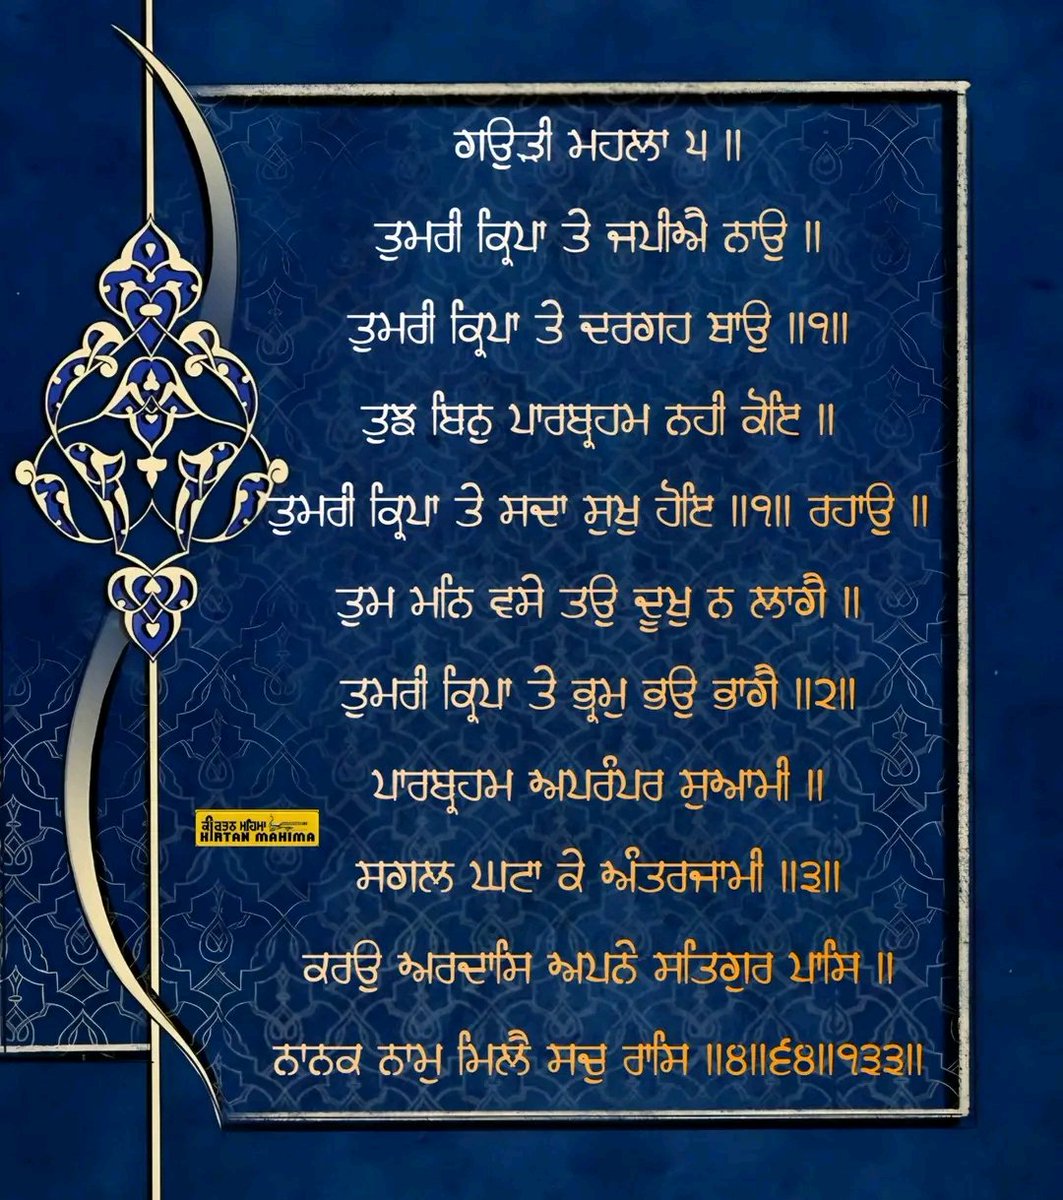 ਗਉੜੀ ਮਹਲਾ ੫ ॥
ਤੁਮਰੀ ਕ੍ਰਿਪਾ ਤੇ ਜਪੀਐ ਨਾਉ ॥
ਤੁਮਰੀ ਕ੍ਰਿਪਾ ਤੇ ਦਰਗਹ ਥਾਉ ॥੧॥
ਤੁਝ ਬਿਨੁ ਪਾਰਬ੍ਰਹਮ ਨਹੀ ਕੋਇ ॥
ਤੁਮਰੀ ਕ੍ਰਿਪਾ ਤੇ ਸਦਾ ਸੁਖੁ ਹੋਇ ॥੧॥ ਰਹਾਉ ॥
ਤੁਮ ਮਨਿ ਵਸੇ ਤਉ ਦੂਖੁ ਨ ਲਾਗੈ ॥
ਤੁਮਰੀ ਕ੍ਰਿਪਾ ਤੇ ਭ੍ਰਮੁ ਭਉ ਭਾਗੈ ॥੨॥
ਪਾਰਬ੍ਰਹਮ ਅਪਰੰਪਰ ਸੁਆਮੀ ॥
ਸਗਲ ਘਟਾ ਕੇ ਅੰਤਰਜਾਮੀ ॥੩॥
ਕਰਉ ਅਰਦਾਸਿ ਅਪਨੇ ਸਤਿਗੁਰ ਪਾਸਿ ॥
ਨਾਨਕ ਨਾਮੁ ਮਿਲੈ ਸਚੁ ਰਾਸਿ ॥੪॥੬੪॥੧੩੩॥
ਕੀਰਤਨ ਮਹਿਮਾ
KIRTAN MAHIMA